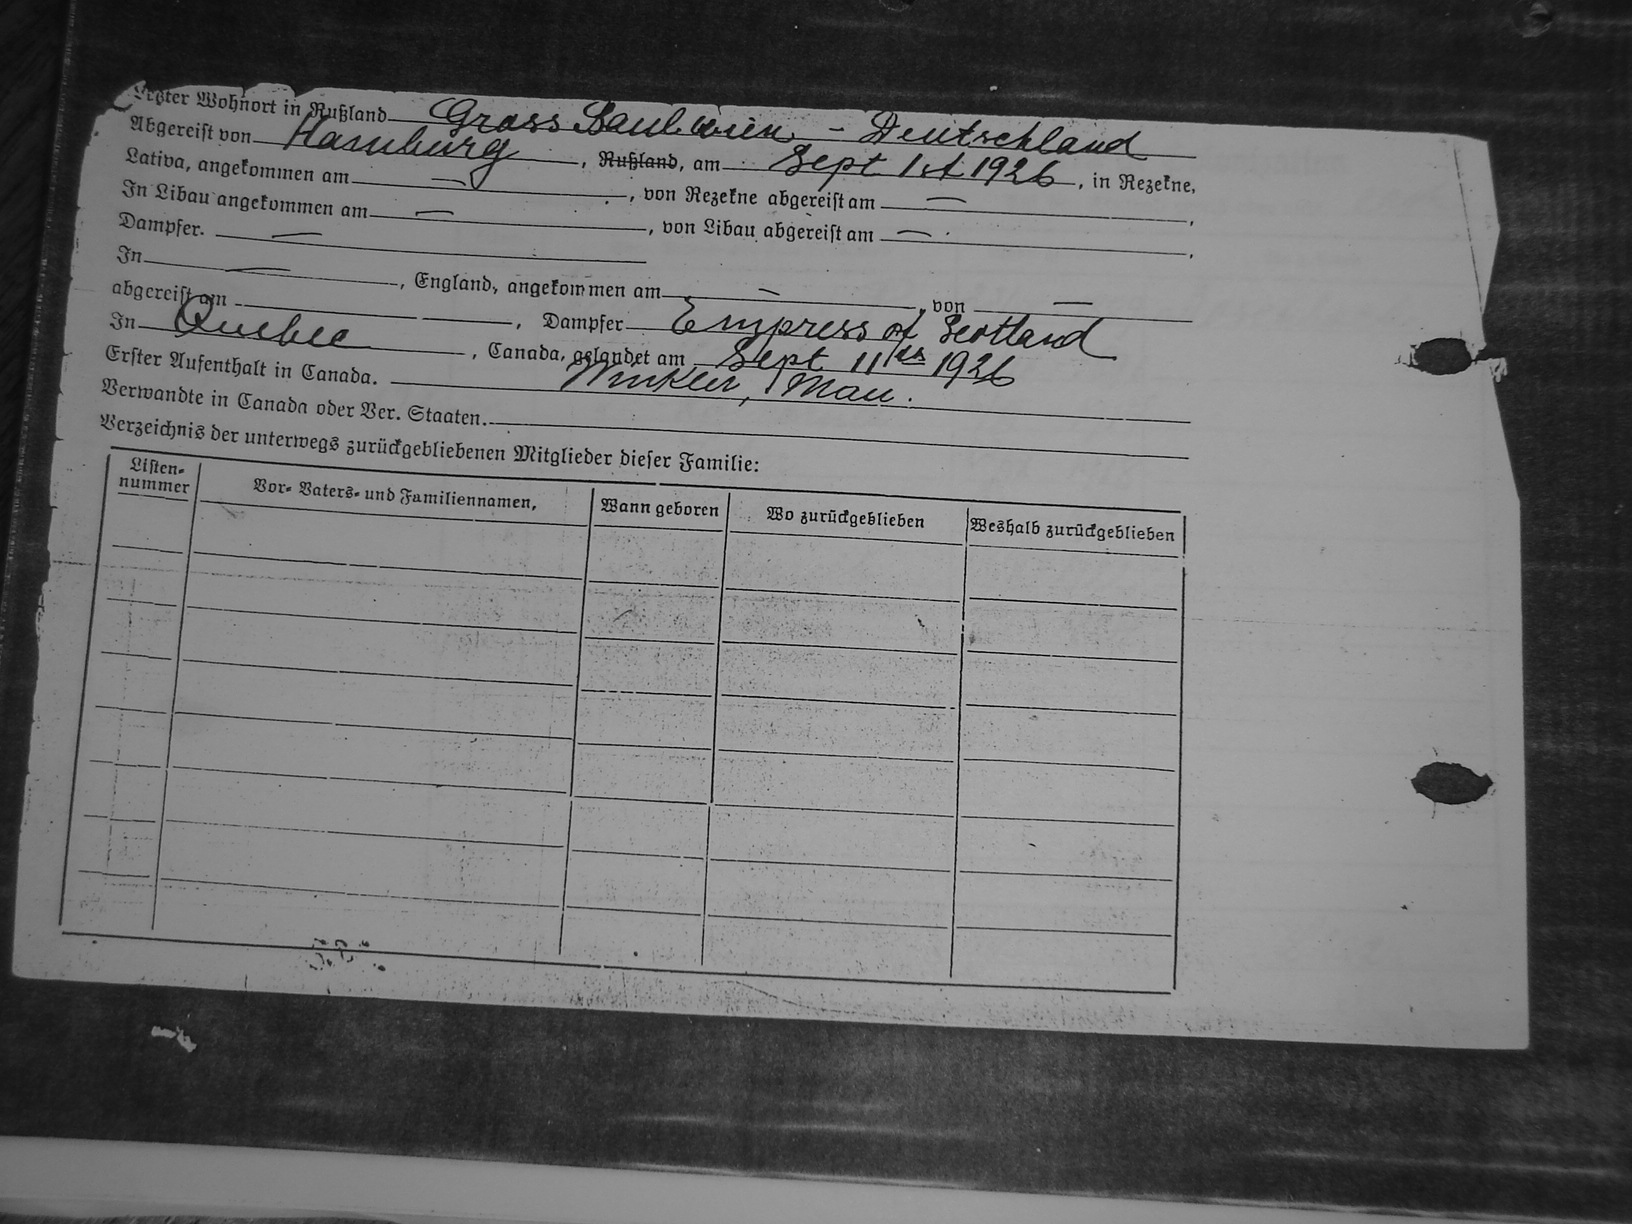 Letzter Wohnort in Rußland Gross - Deutschland
Abgereist von Hamburg, Rußland, am Sept 1st 1926, in Rezekne,
Lativa, angekommen am —, von Rezekne abgereist am —,
In Libau angekommen am —, von Libau abgereist am —,
Dampfer. —
In —, England, angekommen am —, von —
abgereist am, Dampfer Empress of Scotland
In Quebec, Canada, gelandet am Sept 11th 1926
Erster Aufenthalt in Canada. Winkler, Man.
Verwandte in Canada oder Ver. Staaten.
Verzeichnis der unterwegs zurückgebliebenen Mitglieder dieser Familie:
Listen-nummer Vor- Vaters- und Familiennamen, Wann geboren Wo zurückgeblieben Weshalb zurückgeblieben